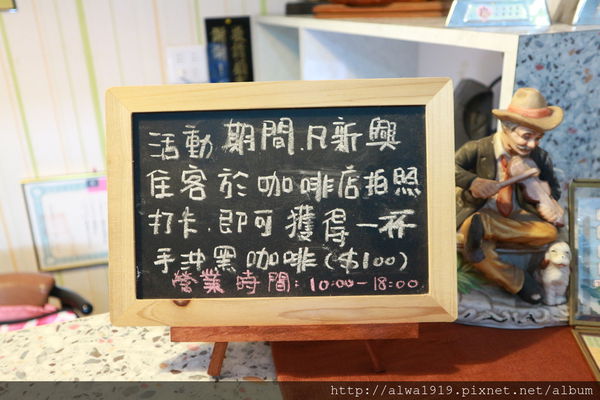 活動期間.凡新興
住客於咖啡店拍照
打卡.即可獲得一杯
手沖黑咖啡($100)
營業時間:10:00-18:00
http://alwa1919.pixnet.net/album